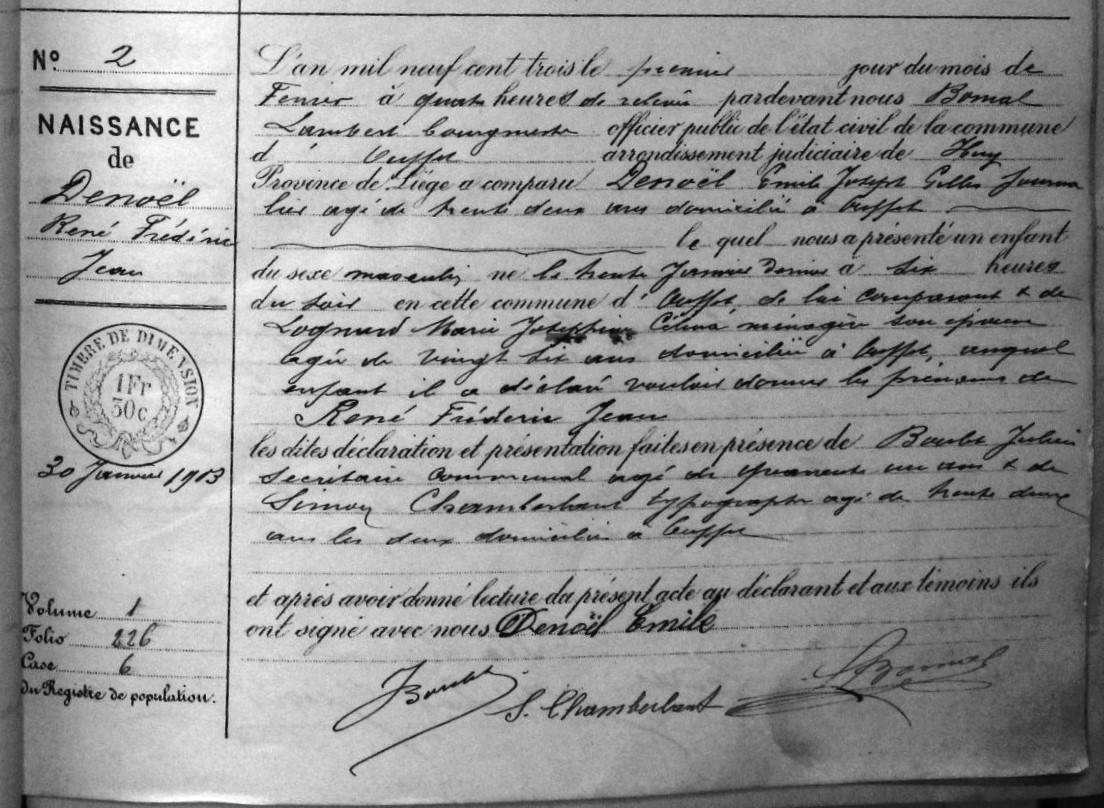 N° 2
NAISSANCE
de
Denoël
René Frédéric
Jean
TIMBRE DE DIMENSION
1Fr
30c
30 Janvier 1903
Volume 1
Folio 226
Case 6
du Registre de population.
L'an mil neuf cent trois le premier jour du mois de
Fevrier à quatre heures de relevée pardevant nous Bomal
Lambert bourgmestre officier public de l'état civil de la commune
d' Ouffet arrondissement judiciaire de Huy
Province de Liège a comparu Denoël Emile Joseph Gilles Journa
lier agé de trente deux ans domicilié à Ouffet
le quel nous a présenté un enfant
du sexe masculin né le trente Janvier dernier à six heures
du soir en cette commune d' Ouffet, de lui comparant & de
Lognard Marie Joséphine Célina ménagère son épouse
agée de vingt six ans domiciliée à Ouffet, auquel
enfant il a déclaré vouloir donner les prénoms de
René Fréderic Jean
les dites déclaration et présentation faites en présence de Boulet Julien
secrétaire communal agé de quarante un ans & de
Simon Chamberlant typographe agé de trente deux
ans les deux domiciliés à Ouffet
et après avoir donné lecture du présent acte au déclarant et aux témoins ils
ont signé avec nous Denoël Emile
JBoulet
S. Chamberlant
LBomal